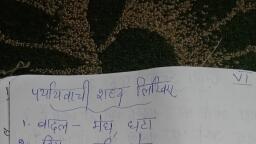 VI
पर्यायवाची शब्द लिखिए
१. बादल – मेघ, घटा